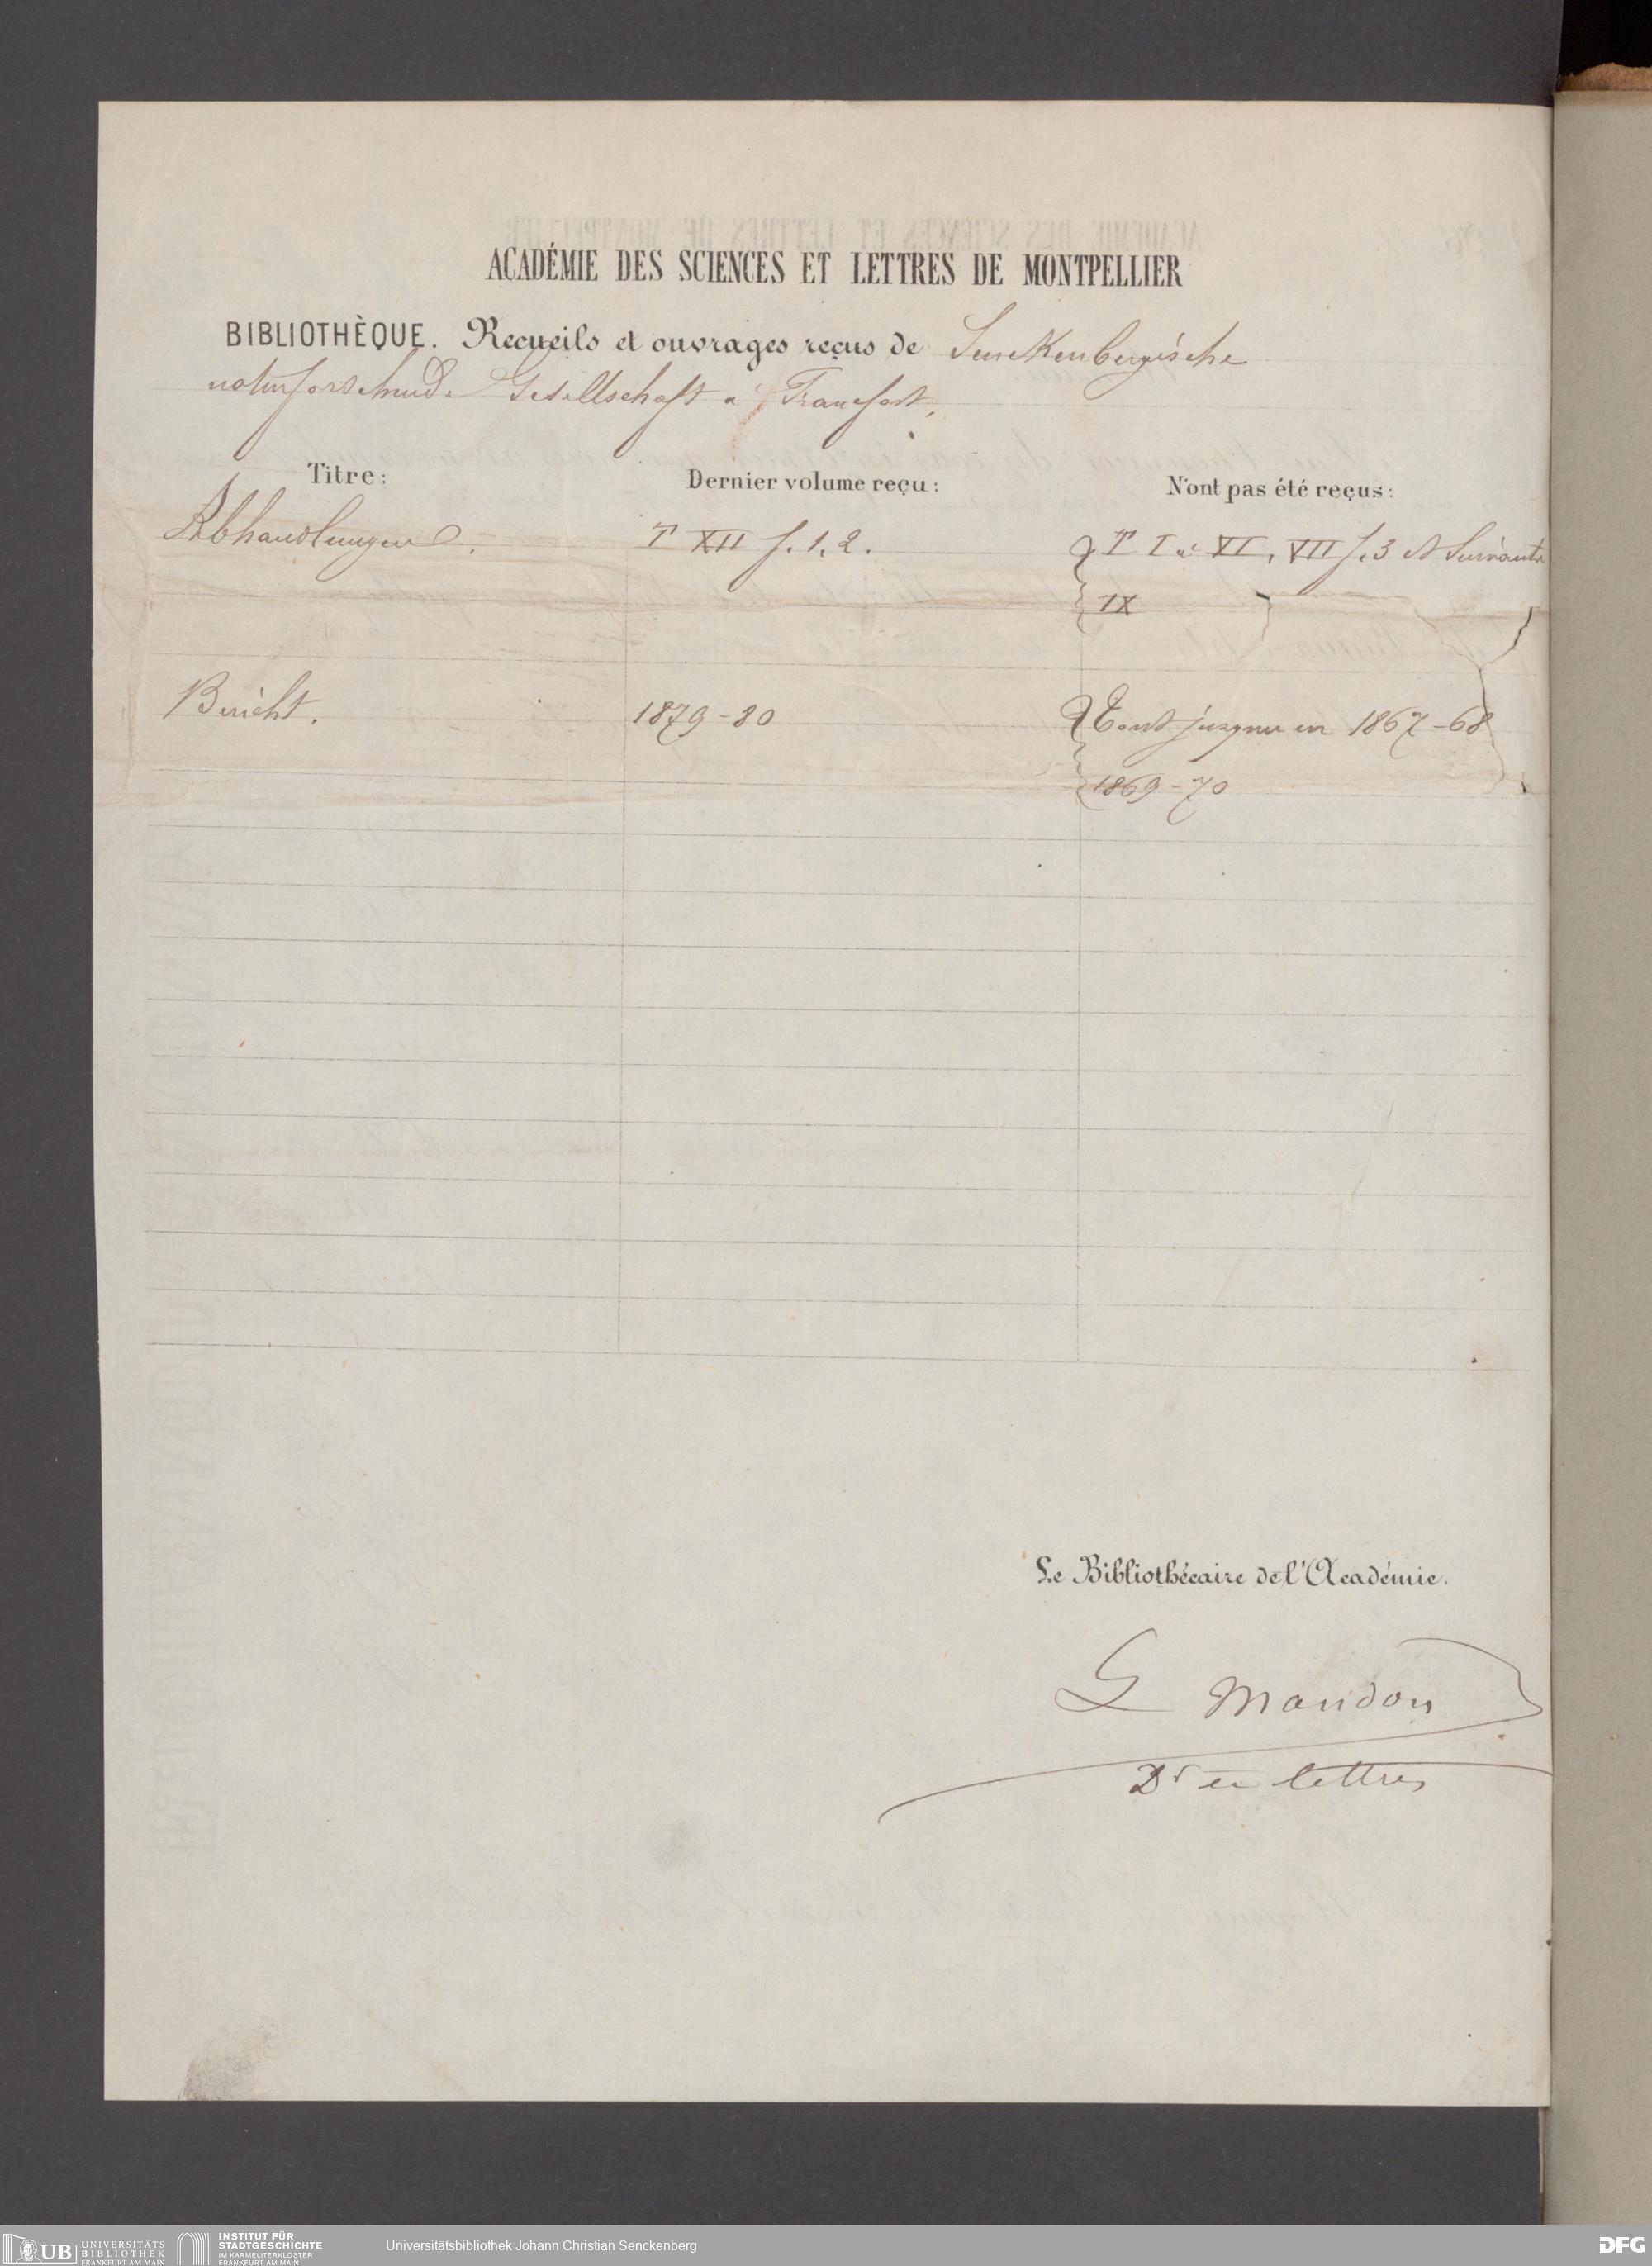 ACADÉMIE DES SCIENCES ET LETTRES DE MONTPELLIER
BIBLIOTHÈQUE. Recueils et ouvrages reçus de Senckenbergische
naturforschende Gesellschaft a Francfort,
Titre: Dernier volume reçu: N'ont pas été reçus:
Abhandlungen. T XII f. 1, 2. T I à VI, VII f. 3 et suivants
IX
Bericht. 1879-80 Tout jusque en 1867-68
1869-70
Le Bibliothécaire de l'Académie.
G Mandon
Dr en lettres
UB UNIVERSITÄTS BIBLIOTHEK FRANKFURT AM MAIN
INSTITUT FÜR STADTGESCHICHTE IM KARMELITERKLOSTER FRANKFURT AM MAIN
Universitätsbibliothek Johann Christian Senckenberg
DFG